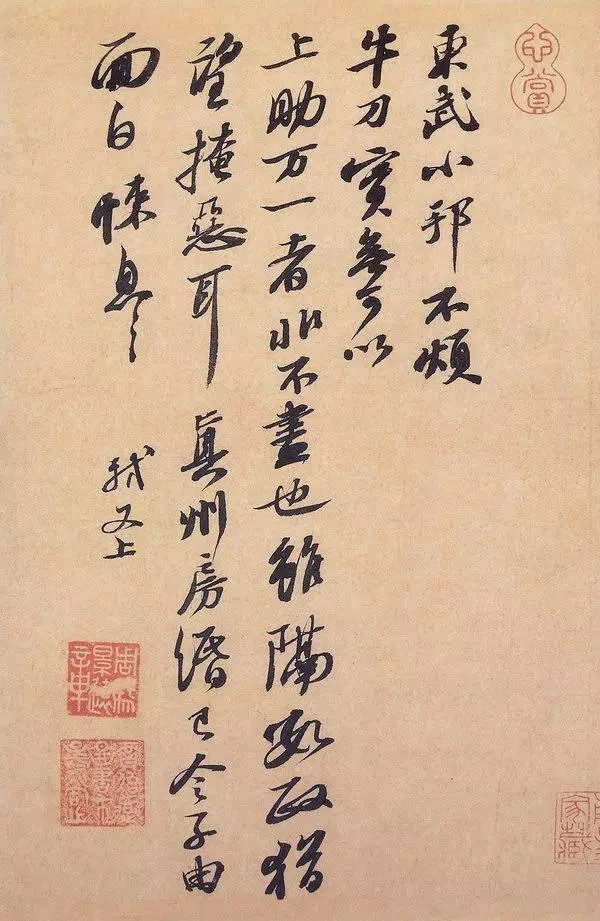 東武小邦不煩
牛刀實無可以
上助万一者非不盡也雖隔數政猶
望掩惡耳 真州房緡已令子由
面白悚息〻 軾又上
心賞
家藏